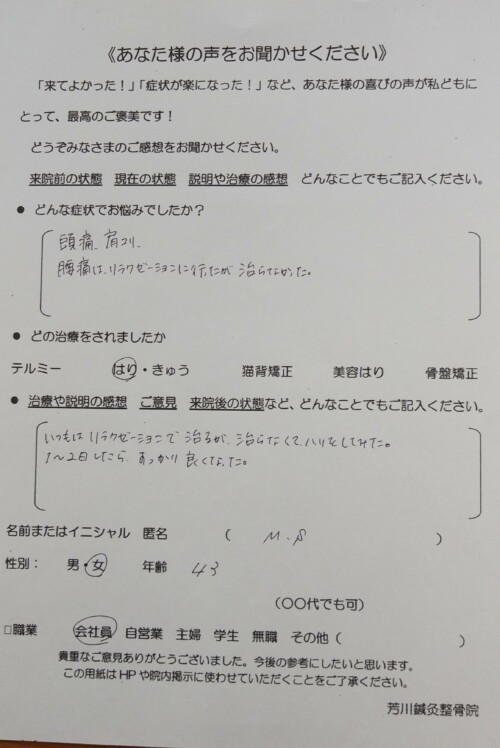 《あなた様の声をお聞かせください》
「来てよかった！」「症状が楽になった！」など、あなた様の喜びの声が私どもに
とって、最高のご褒美です！
どうぞみなさまのご感想をお聞かせください。
来院前の状態　現在の状態　説明や治療の感想　どんなことでもご記入ください。
● どんな症状でお悩みでしたか？
頭痛、肩コリ、
腰痛は、リラクゼーションに行ったが 治らなかった。
● どの治療をされましたか
テルミー　はり・きゅう　猫背矯正　美容はり　骨盤矯正
● 治療や説明の感想　ご意見　来院後の状態など、どんなことでもご記入ください。
いつもは リラクゼーションで 治るが、治らなくて、ハリをしてみた。
1〜2日したら、すっかり 良くなった。
名前またはイニシャル　匿名　（ M.S ）
性別：　男・女　年齢　43
（〇〇代でも可）
□職業　会社員　自営業　主婦　学生　無職　その他（　　）
貴重なご意見ありがとうございました。今後の参考にしたいと思います。
この用紙はHPや院内掲示に使わせていただくことをご了承ください。
芳川鍼灸整骨院